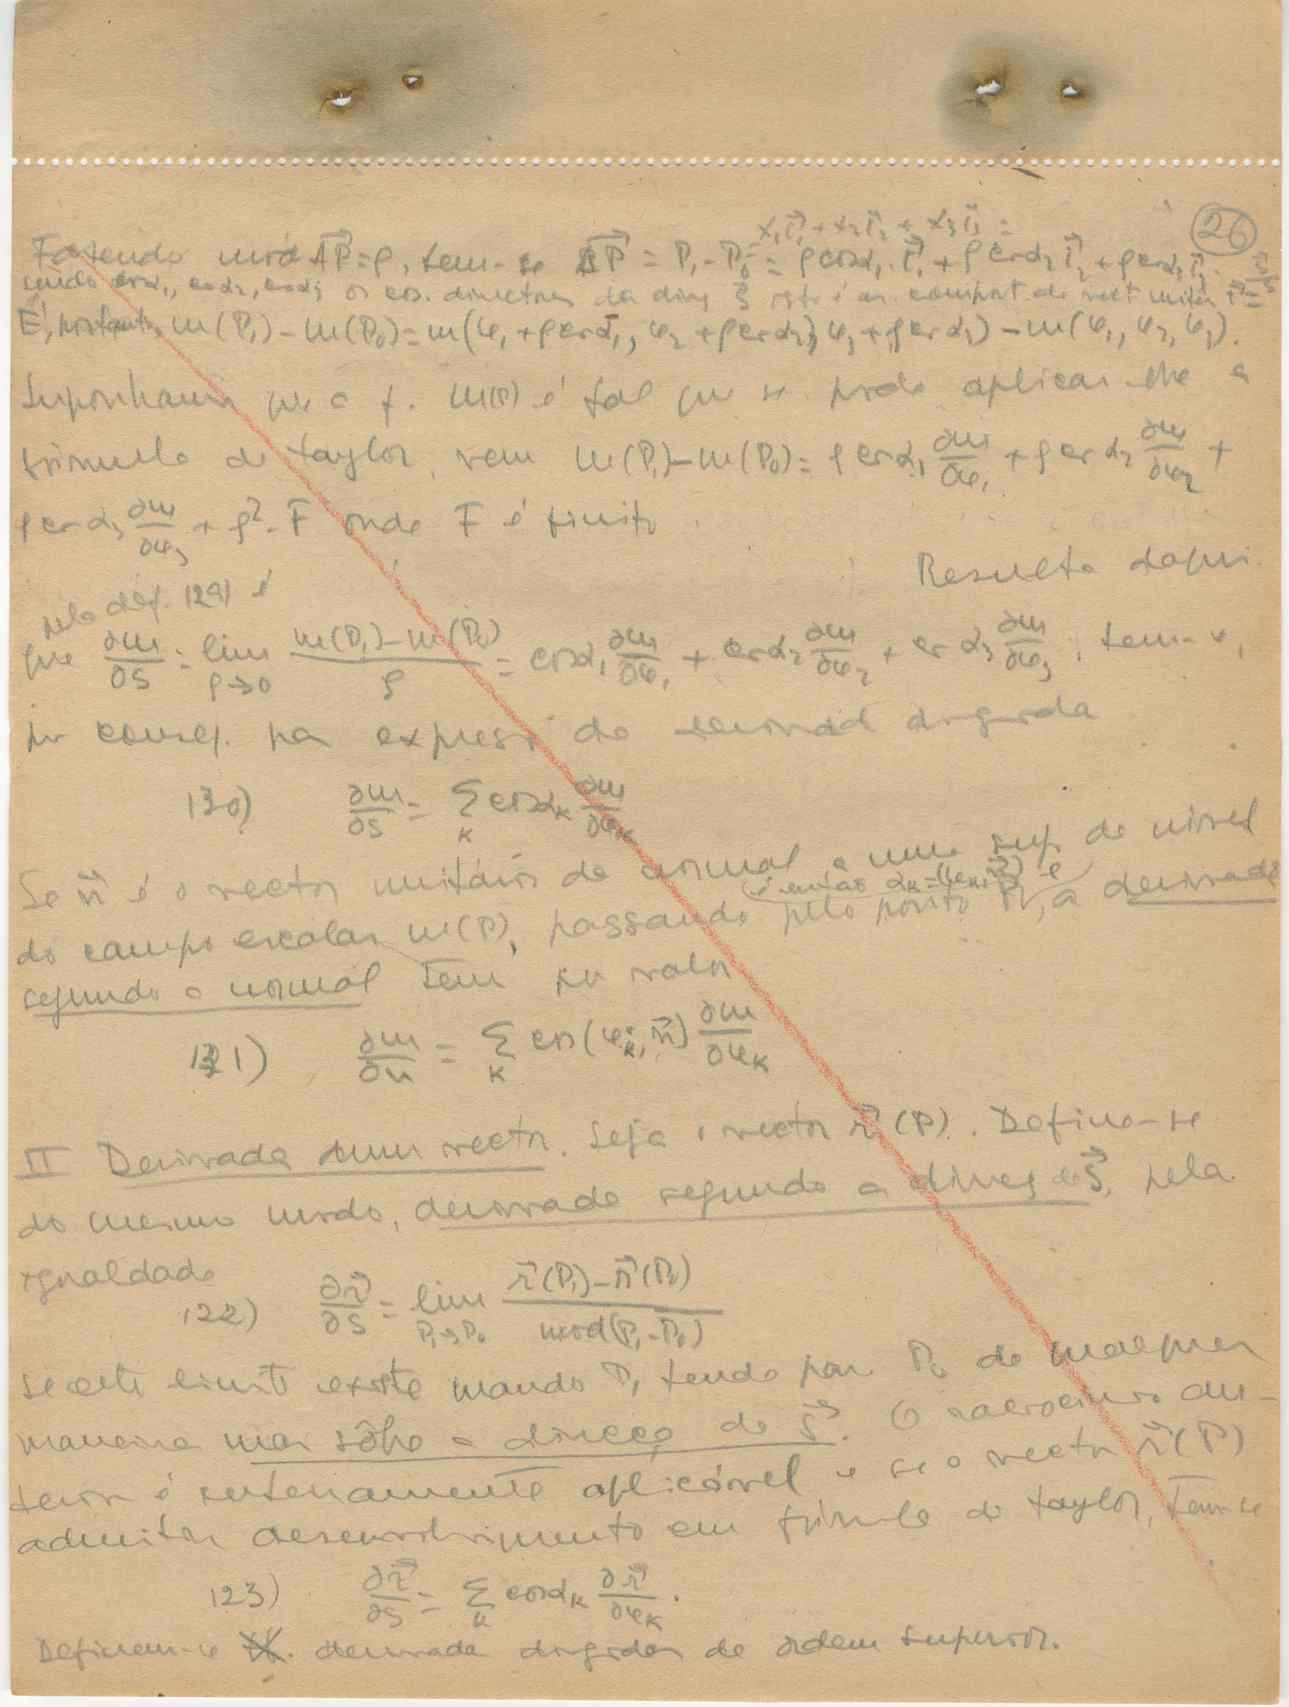 26
x₁r⃗₁ + x₂r⃗₂ + x₃r⃗₃ =
Fazendo mod ΔP⃗ = ρ, tem-se ΔP⃗ = P₁ - P₀ = ρ cos α₁ r⃗₁ + ρ cos α₂ r⃗₂ + ρ cos α₃ r⃗₃
sendo cos α₁, cos α₂, cos α₃ os cos. directores da direç s⃗ isto é as component. do vect unitár
É, portanto, m(P₁) - m(P₀) = m(φ₁ + ρ cos α₁, φ₂ + ρ cos α₂, φ₃ + ρ cos α₃) - m(φ₁, φ₂, φ₃).
Suponhamos que a f. m(P) é tal que se pode aplicar-lhe a
fórmula de Taylor, vem m(P₁) - m(P₀) = ρ cos α₁ ∂m/∂φ₁ + ρ cos α₂ ∂m/∂φ₂ +
ρ cos α₃ ∂m/∂φ₃ + ρ². F onde F é finito
Resulta daqui
pela def. 129) é
que ∂m/∂s = lim ρ→0 (m(P₁) - m(P₀))/ρ = cos α₁ ∂m/∂φ₁ + cos α₂ ∂m/∂φ₂ + cos α₃ ∂m/∂φ₃, tem-se,
por conseq. pa expressã da derivada dirigida
130) ∂m/∂s = Σ_K cos α_K ∂m/∂φ_K
Se n⃗ é o vector unitário da normal a uma sup. de nível
(é então α_K = (φ_K, n⃗)) e
do campo escalar m(P), passando pelo ponto P₀, a derivada
segundo a normal tem por valor
131) ∂m/∂n = Σ_K cos(φ_K, n⃗) ∂m/∂φ_K
II Derivada dum vector. Seja o vector r⃗(P). Define-se
do mesmo modo, derivada segundo a direç de s⃗, pela
igualdade
122) ∂r⃗/∂s = lim P₁→P₀ (r⃗(P₁) - r⃗(P₀))/mod(P₁ - P₀)
se este limite existe quando P₁ tende para P₀ de qualquer
maneira mas sôbre a direcço de s⃗. O raciocínio an-
terior é inteiramente aplicável e se o vector r⃗(P)
admitir desenvolvimento em fórmula de Taylor, tem-se
123) ∂r⃗/∂s = Σ_K cos α_K ∂r⃗/∂φ_K.
Definem-se derivadas dirigidas de ordem superior.